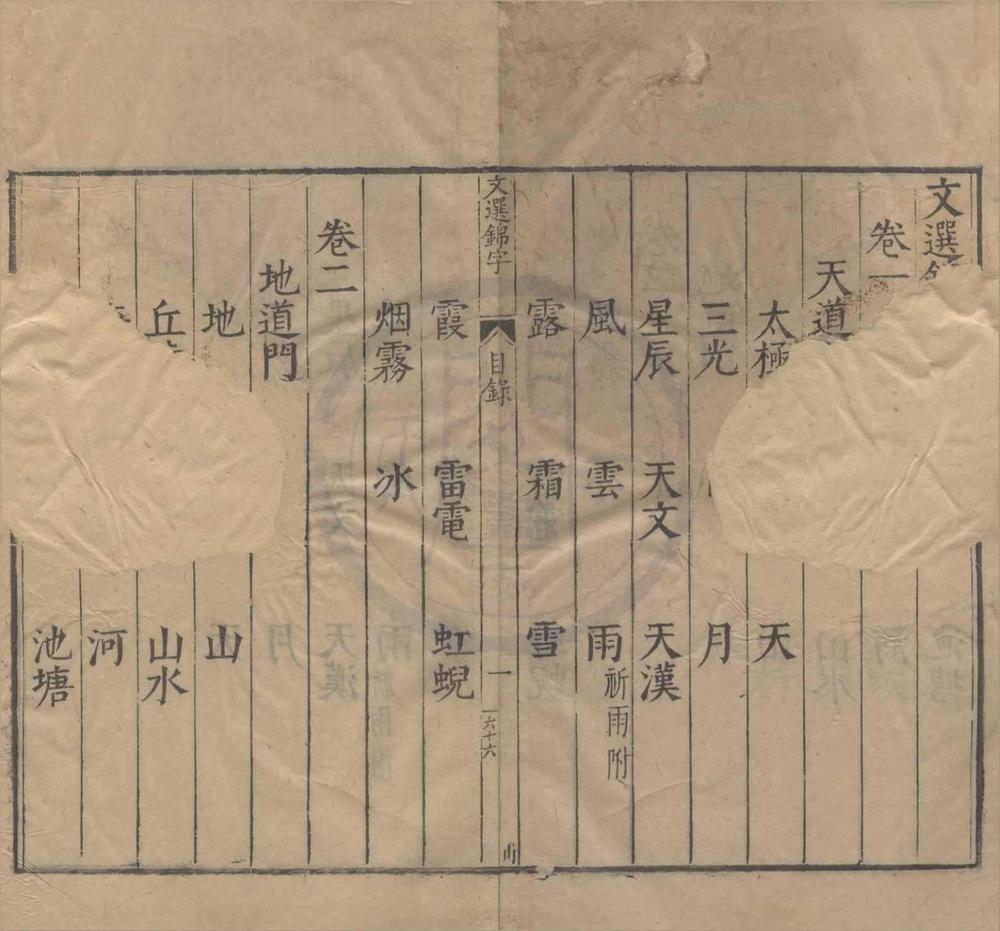 文選
卷一
天道
太極 天
三光 月
星辰 天文 天漢
風 雲 雨 祈雨附
露 霜 雪
文選錦字 目錄 一 一六十六
霞 雷電 虹蜺
烟霧 冰
卷二
地道門
地 山
丘 山水
河
池塘